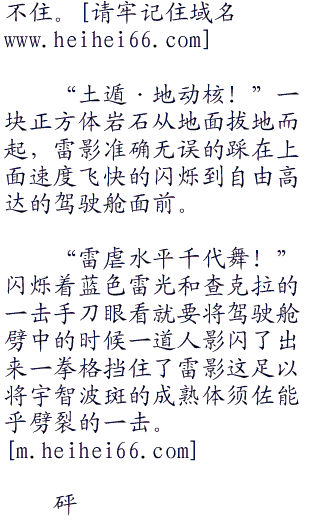 不住。[请牢记住域名
www.heihei66.com]
“土遁·地动核！”一
块正方体岩石从地面拔地而
起，雷影准确无误的踩在上
面速度飞快的闪烁到自由高
达的驾驶舱面前。
“雷虐水平千代舞！”
闪烁着蓝色雷光和查克拉的
一击手刀眼看就要将驾驶舱
劈中的时候一道人影闪了出
来一拳格挡住了雷影这足以
将宇智波斑的成熟体须佐能
乎劈裂的一击。
[m.heihei66.com]
砰